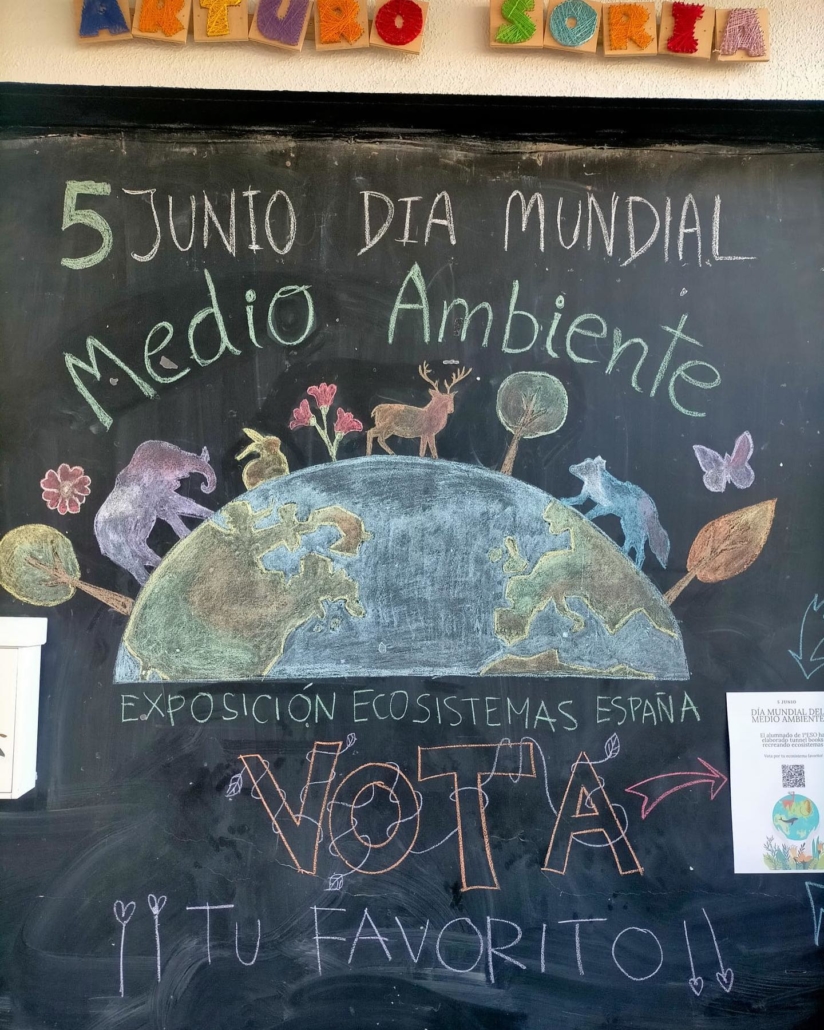 ARTURO SORIA
5 JUNIO DIA MUNDIAL
Medio Ambiente
EXPOSICIÓN ECOSISTEMAS ESPAÑA
VOTA
¡¡TU FAVORITO!!
5 JUNIO
DÍA MUNDIAL DEL
MEDIO AMBIENTE
El alumnado de 1ºESO ha
elaborado tunnel books
recreando ecosistemas